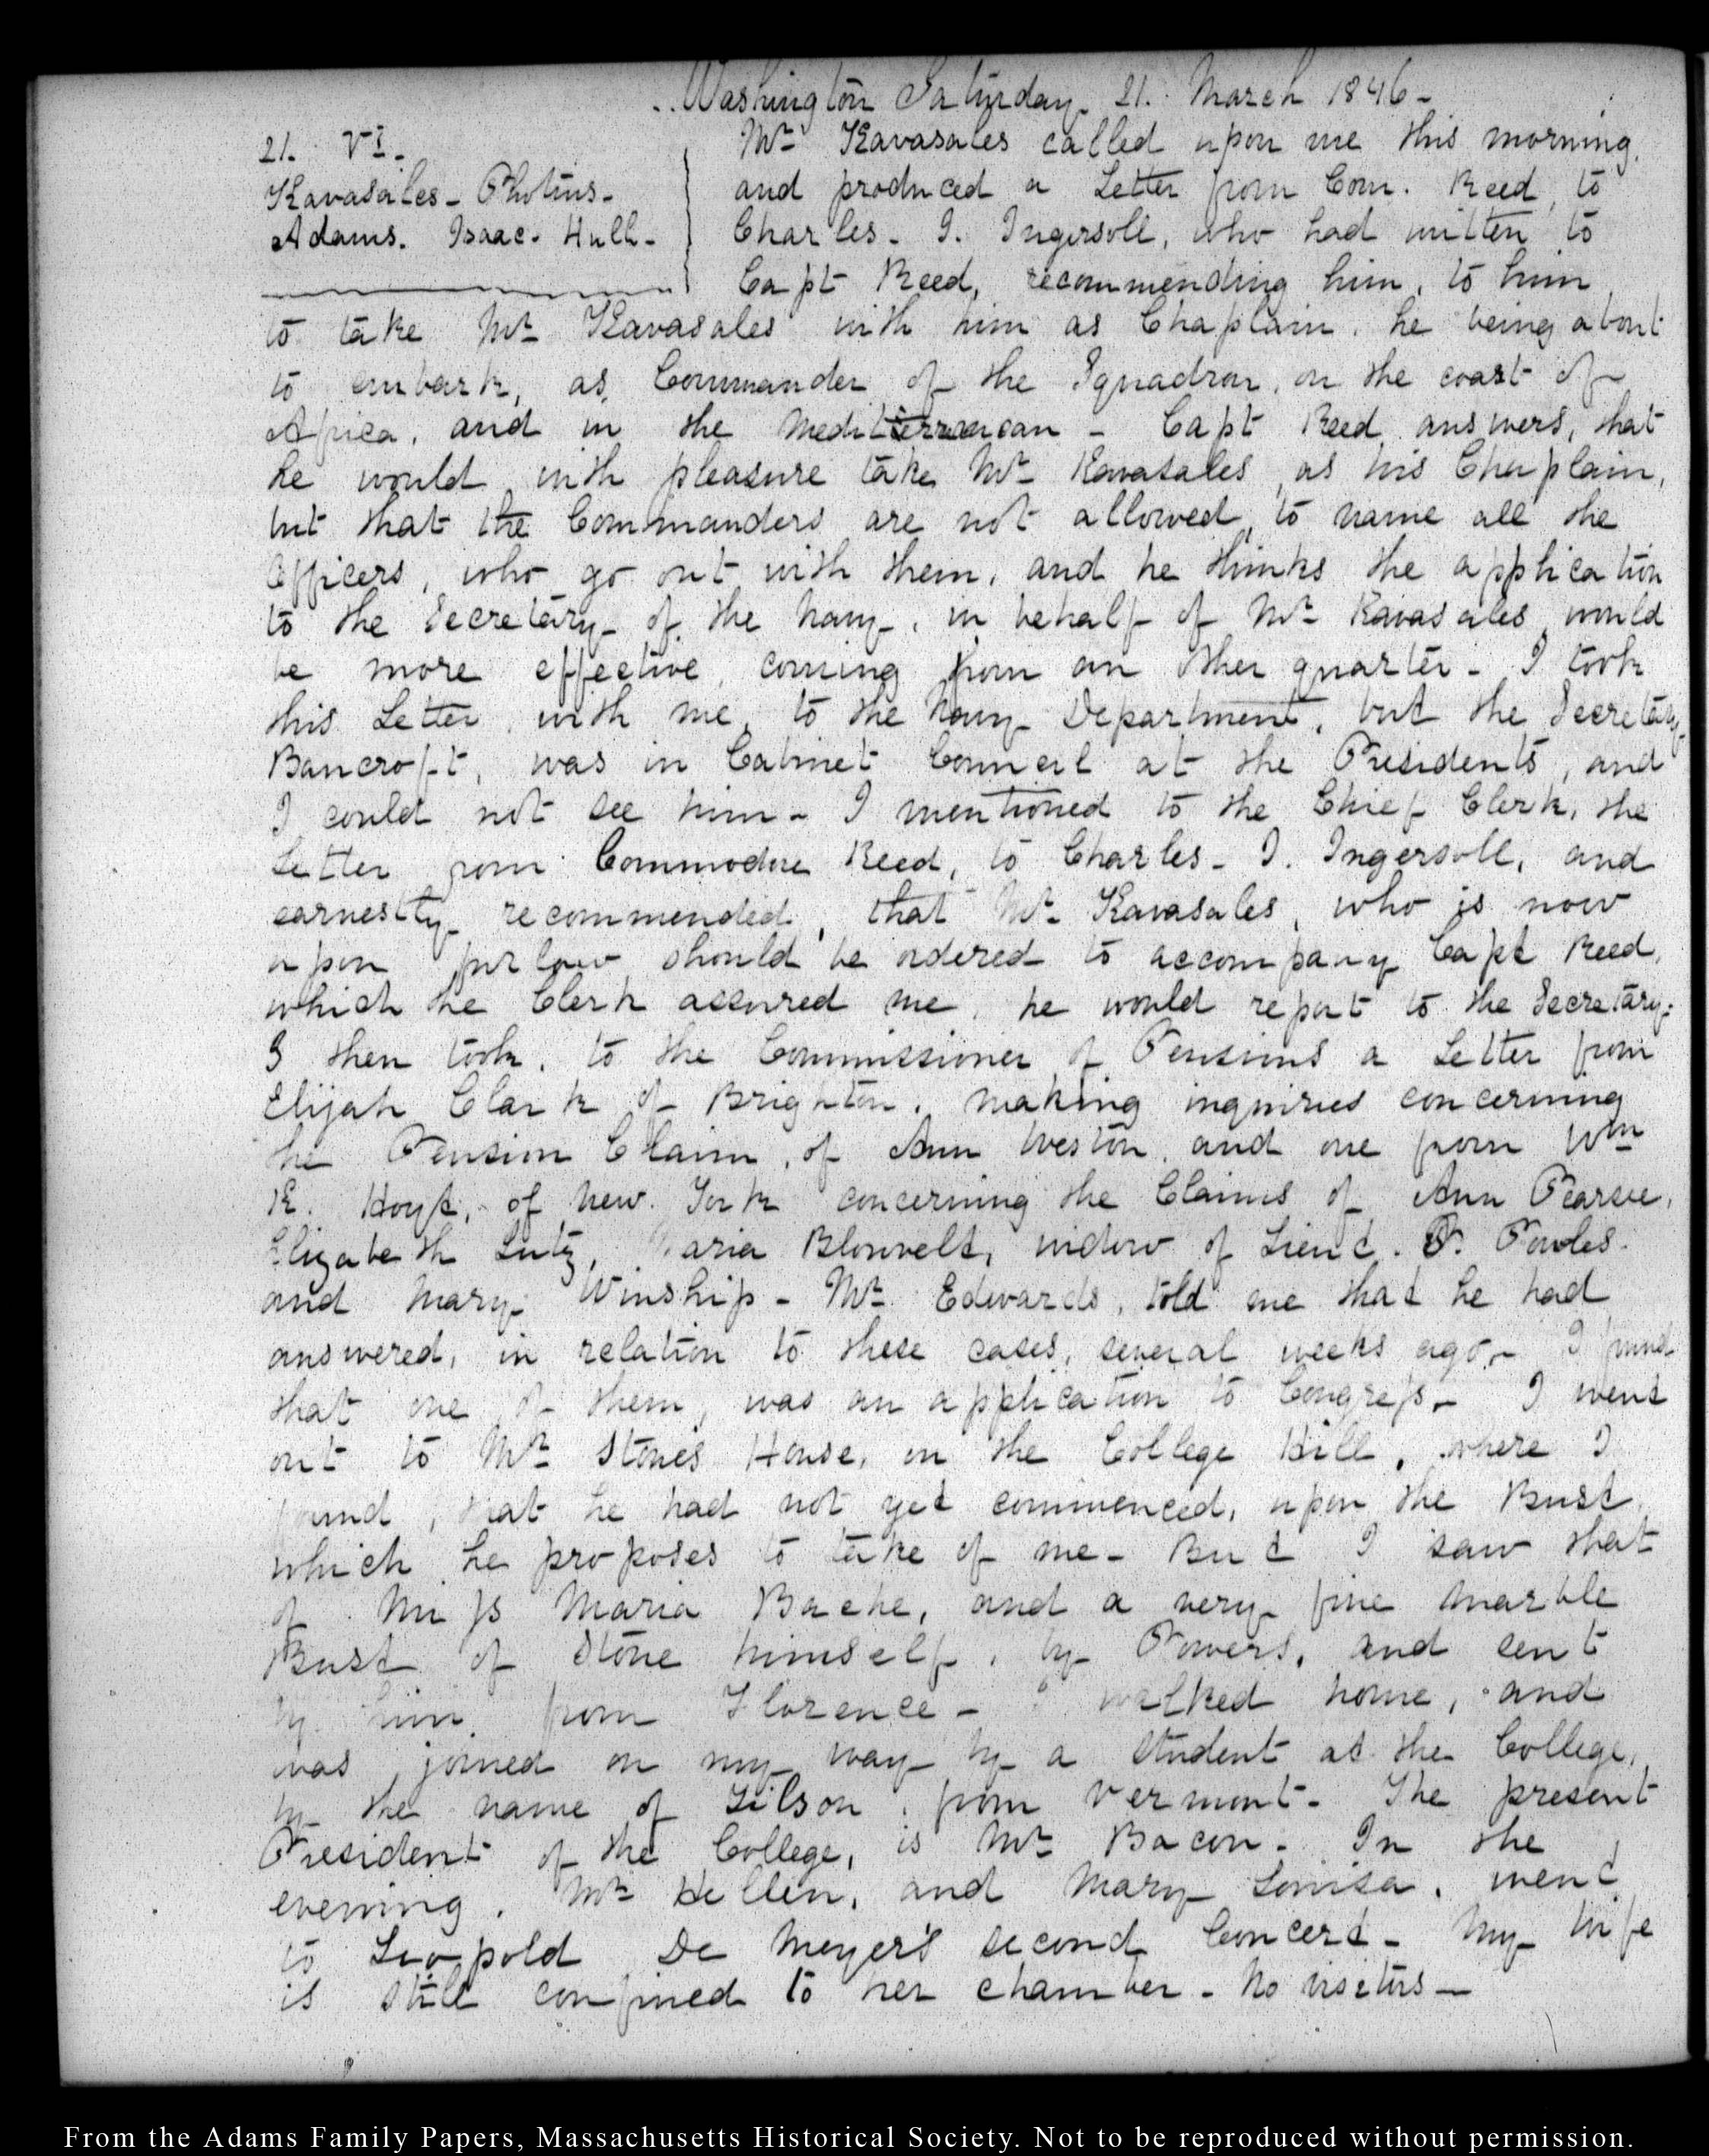 Washington Saturday 21. March 1846-
21. VI.
Kavasales- Photius-
Adams. Isaac. Hull-
Mr. Kavasales called upon me this morning,
and produced a Letter from Com. Reed, to
Charles- J. Ingersoll, who had written to
Capt Reed, recommending him, to him
to take Mr. Kavasales with him as Chaplain, he being about
to embark, as, Commander of the Squadron, on the coast of
Africa, and in the Mediterranean - Capt Reed answers, that
he would with pleasure take Mr. Kavasales, as his Chaplain,
but that the Commanders are not allowed, to name all the
Officers, who go out with them, and he thinks the application
to the Secretary- of the Navy-, in behalf of Mr. Kavasales, would
be more effective, coming from an other quarter- I took
this Letter, with me, to the Navy Department, but the Secretary
Bancroft, was in Cabinet Council at the Presidents, and
I could not see him- I mentioned to the Chief Clerk, the
Letter from Commodore Reed, to Charles- J. Ingersoll, and
earnestly recommended, that Mr. Kavasales, who is now
upon furlow should be ordered to accompany Capt Reed,
which the Clerk assured me, he would report to the Secretary-
I then took, to the Commissioner of Pensions a Letter from
Elijah Clark of Brighton, making inquiries concerning
the Pension Claim, of Ann Weston, and one from Wm
K. Hoyt, of New. York concerning the Claims of Ann Pearse,
Elizabeth Lutz, Maria Blouvelt, widow of Lieut. P. Powles-
and Mary Winship- Mr. Edwards, told me that he had
answered, in relation to these cases, several weeks ago,- I found
that one of them, was an application to Congress,- I went
out to Mr. Stone's House, on the College Hill, where I
found, that he had not yet commenced, upon the Bust,
which he proposes to take of me- But I saw that
of Miss Maria Bache, and a very fine marble
Bust of Stone himself, by Powers, and sent
by him from Florence- I walked home, and
was joined on my way by a student at the College,
by the name of Tilson, from Vermont- The present
President of the College, is Mr. Bacon- In the
evening, Mrs. Hellen, and Mary- Louisa, went
to Leopold De Meyer's second Concert- My wife
is still confined to her chamber- No visitors-
From the Adams Family Papers, Massachusetts Historical Society. Not to be reproduced without permission.